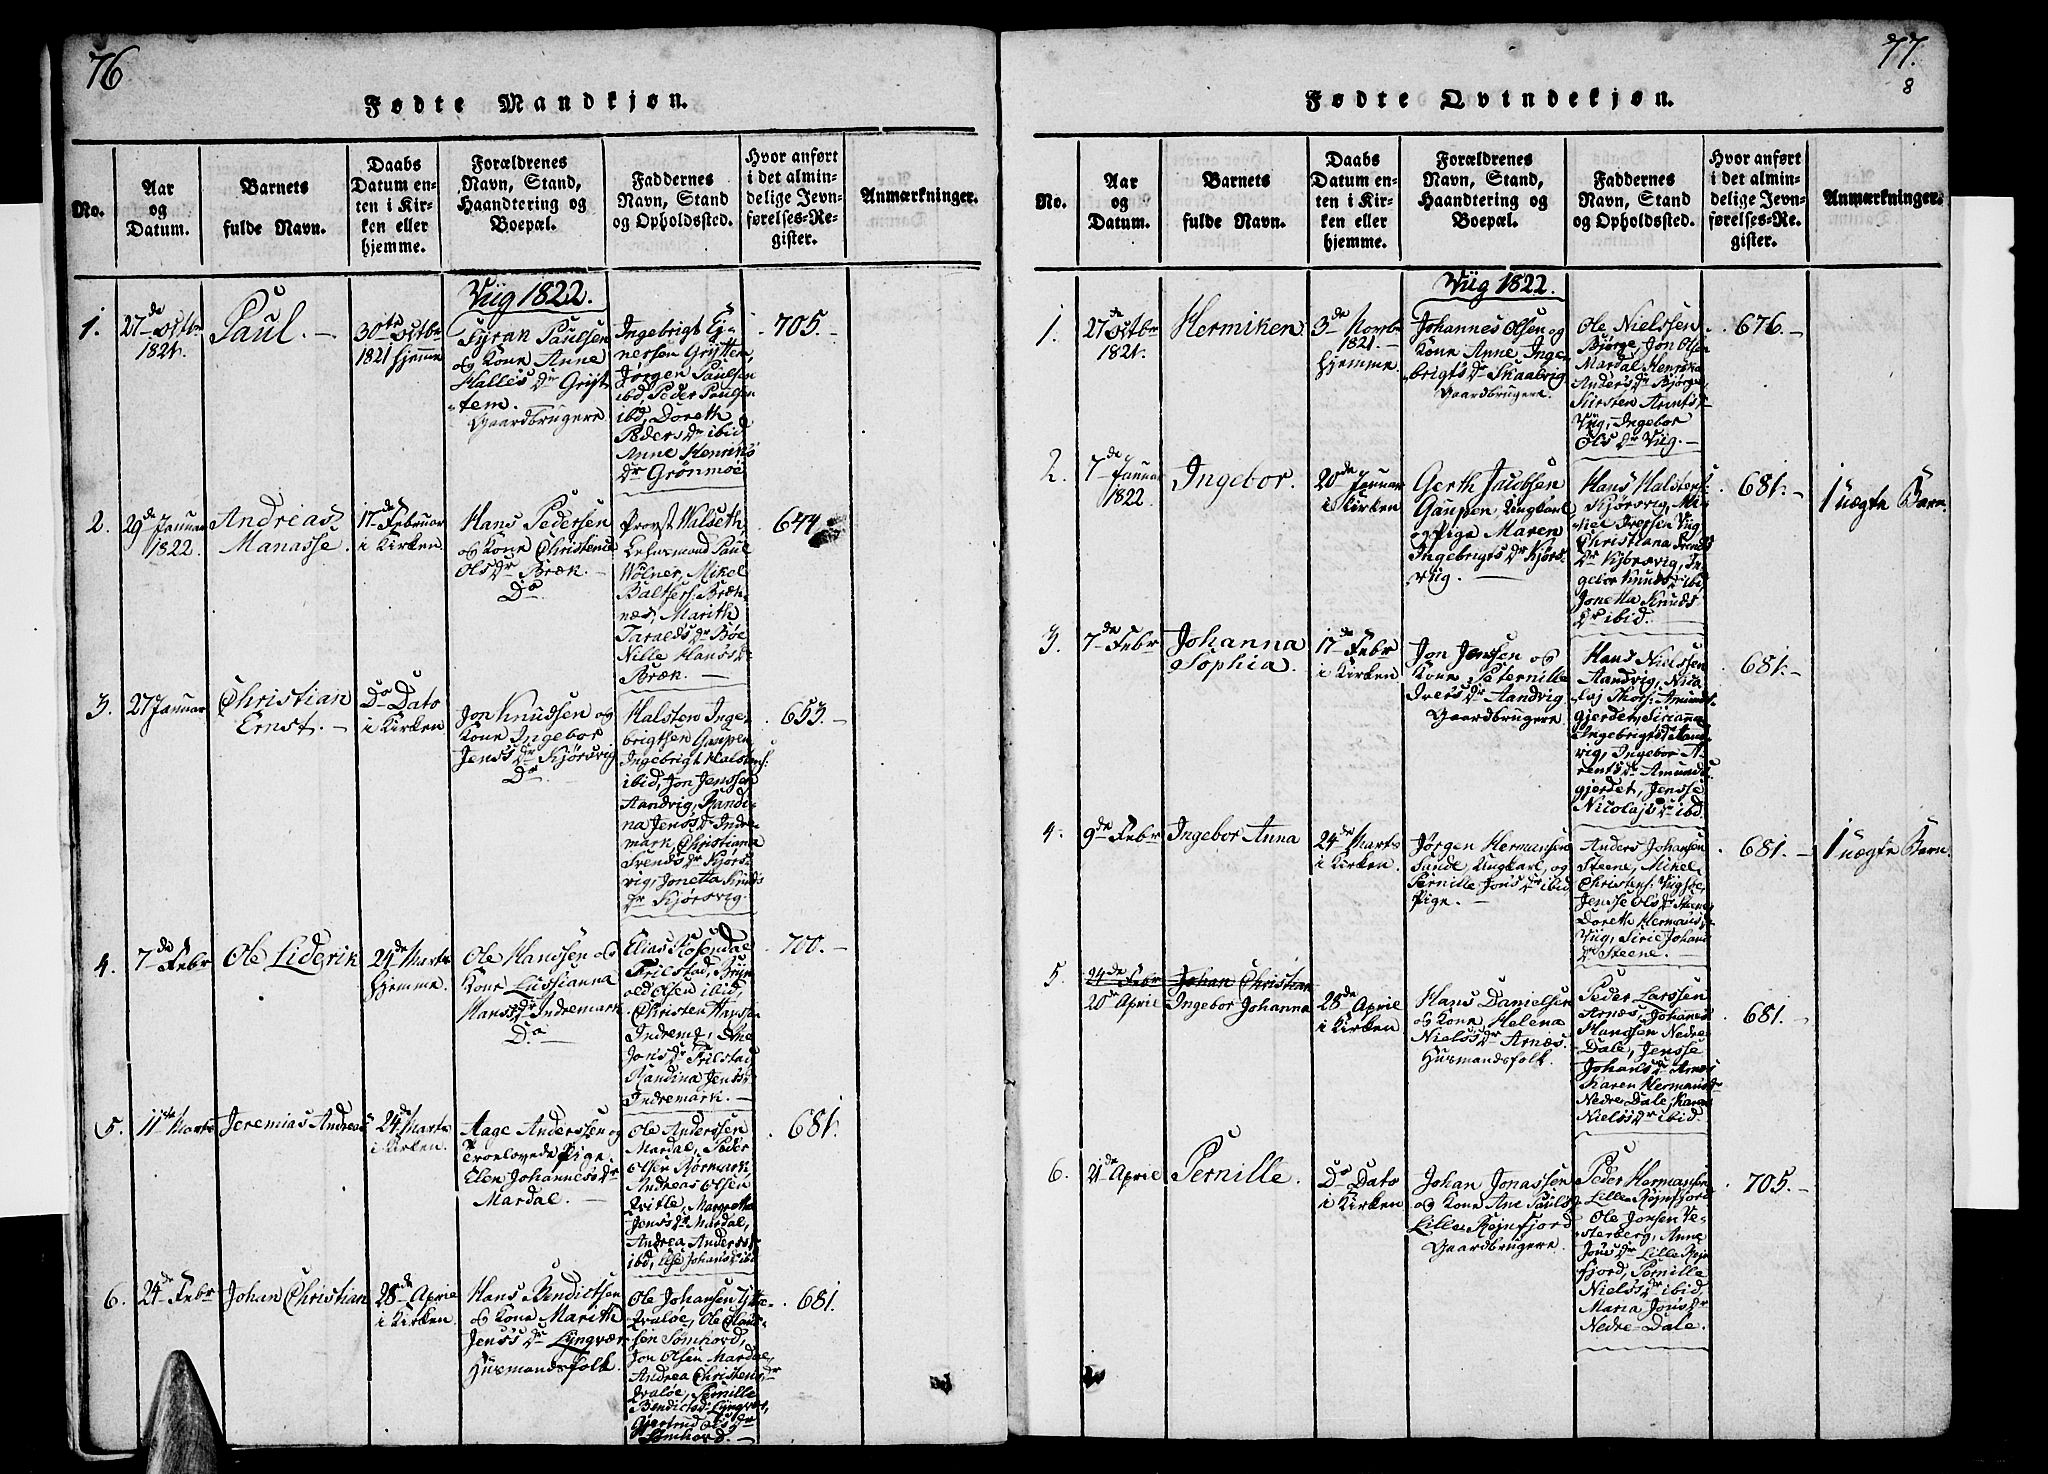 76
Fødte Mandkjøn.
No.
Aar
og
Datum.
Barnets
fulde Navn.
Daabs
Datum en-
ten i Kir-
ken eller
hjemme.
Forældrenes
Navn, Stand,
Haandtering og
Boepæl.
Faddernes
Navn, Stand
og Opholdssted.
Hvor anført
i det almin-
delige Jevn-
førelses-Re-
gister.
Anmærkninger.
Viig 1822.
1.
27de Octbr
1821.
Paul.
30te Octbr
1821 hjemme
Paulsen
og Kone Anne
Halles Dr Gryt-
tem.
Gaardbrugere
Ingebrigt Ej-
nersen Grytten,
Jørgen Paulsen
ibd, Peder Paulsen
ibd, Doreth
Peders Dr ibid
Anne Henriks
Dr Grønmoe
705.
2.
29de Januar
1822.
Andreas
Manasse.
17de Februar
i Kirken.
Hans Pedersen
og Kone Christence
Ols Dr Bræk.
Do
Provst Walseth
Lehnsmand Paul
Wølner, Mikel
Balthers: Bræk-
næs, Marith
Taralds Dr Bøe
Nille Hans Dr
Bræk.
644.
3.
27 Januar
Christian
Ernst.
Do Dato
i Kirken
Jon Knudsen og
Kone Ingebor
Jens Dr Kjørsvig
Do
Halsten Inge-
brigtsen Gaupen,
Ingebrigt Halstens:
ibid, Jon Jenssen
Aandvig, Randi-
na Jens Dr Indre-
mark, Christiana
Svends Dr Kjørs-
vig, Jonetta Knuds
Dr Kjørsvig.
653.
4.
7de Febr
Ole Liderik
24de Marts
hjemme.
Ole Hanssen og
Kone Lussianna
Hans Dr Indremark
Do
Elias Rosendal
Frilstad, Bryn-
old Olsen ibid,
Christen Hans:
Indrem:, Ane
Jons Dr Frilstad
Randina Jens Dr
Indremark.
700.
5.
11te Marts
Jeremias Andreas
24de Marts
i Kirken.
Aage Anderssen og
Troelovede Pige
Elen Johannes Dr
Mardal.
Ole Anderssen
Mardal, Peder
Olsen
Andreas Olsen
Margretha
Jens Dr Mardal,
Andrea Anders Dr
ibd, Else Johans Dr ibd
681.
6.
24de Febr
Johan Christian
28de April
i Kirken.
Hans Bendictsen
og Kone Marith
Jens Dr Lyngvær
Husmandsfolk.
Ole Johansen Ytte-
Ole Hans-
sen Sømhord,
Jon Olsen Mardal,
Andrea Christens Dr
Pernille
Bendicts Dr Lyngvær,
Gjertrud Ols Dr
Sømhord.
681.
77.
8
Fødte Qvindekjøn.
No.
Aar
og
Datum.
Barnets
fulde Navn.
Daabs
Datum en-
ten i Kir-
ken eller
hjemme.
Forældrenes
Navn, Stand,
Haandtering og
Boepæl.
Faddernes
Navn, Stand
og Opholdssted.
Hvor anført
i det almin-
delige Jevn-
førelses-Re-
gister.
Anmærkninger.
Viig 1822.
1.
27de Octbr
1821.
Hermiken
3de Novbr
1821
hjemme.
Johannes Olsen og
Kone Anne Inge-
brigts Dr Skaalvig
Gaardbrugere.
Ole Nielssen
Bjørge, Jon Olsen
Mardal, Henrika
Anders Dr Bjørge,
Kirsten Arnts Dr
Viig, Ingebor
Ols Dr Viig.
676.
2.
7de Januar
1822.
Ingebor.
20de Januar
i Kirken
Gerth Jacobsen
Gaupen, Ungkarl
og Pige Maren
Ingebrigts Dr Kjørs-
viig.
Hans Halstens:
Kjørsvig, Mi-
kel Iversen Viig
Christiana Svends
Dr Kjørsvig, In-
gebor Knuds Dr ibid
Jonetta Knuds
Dr ibid.
681.
1 uægte Barn
3.
7de Febr
Johanna
Sophia.
17de Febr
i Kirken
Jon Jenssen og
Kone Peternille
Ivers Dr Aandvig
Gaardbrugere
Hans Nielssen
Aandvig, Nico-
laj Thors: Amund-
gjerdet, Siriana
Ingebrigts Dr Aand-
vig, Ingebor A-
rents Dr Amunds-
gjerdet, Jensse
Nicolajs Dr ibd.
681.
4.
9de Febr
Ingebor Anna
24de Marts
i Kirken.
Jørgen Hermansen
Sunde Ungkarl, og
Pernille Jons Dr ibid
Pige.
Anders Johansen
Steene, Mikel
Christens: Viigsøe,
Jensse Ols Dr Steene
Doreth Hermans Dr
Viig, Sirie Johans
Dr Steene.
681.
1 uægte Barn.
5.
24de Febr
20de April
Johan Christian
Ingebor Johanna
28de April
i Kirken
Hans Danielsen
og Kone Helena
Niels Dr Arnæs.
Husmandsfolk.
Peder Larssen
Arnæs, Johannes
Hanssen Nedre-
Dale, Jensse
Johans Dr Arnæs
Karen Hermans Dr
Nedre Dale, Karen
Niels Dr ibid.
681.
6.
21de April
Pernille.
Do Dato
i Kirken
Johan Jonassen
og Kone Ane Pauls Dr
Lille Røjnfjord
Gaardbrugere.
Peder Hermansen
Lille Røjnfjord
Ole Jonsen Ve-
sterberg, Anne
Jons Dr Lille Røjn-
fjord, Pernille
Niels Dr ibid,
Maria Jons Dr
Nedre-Dale.
705.